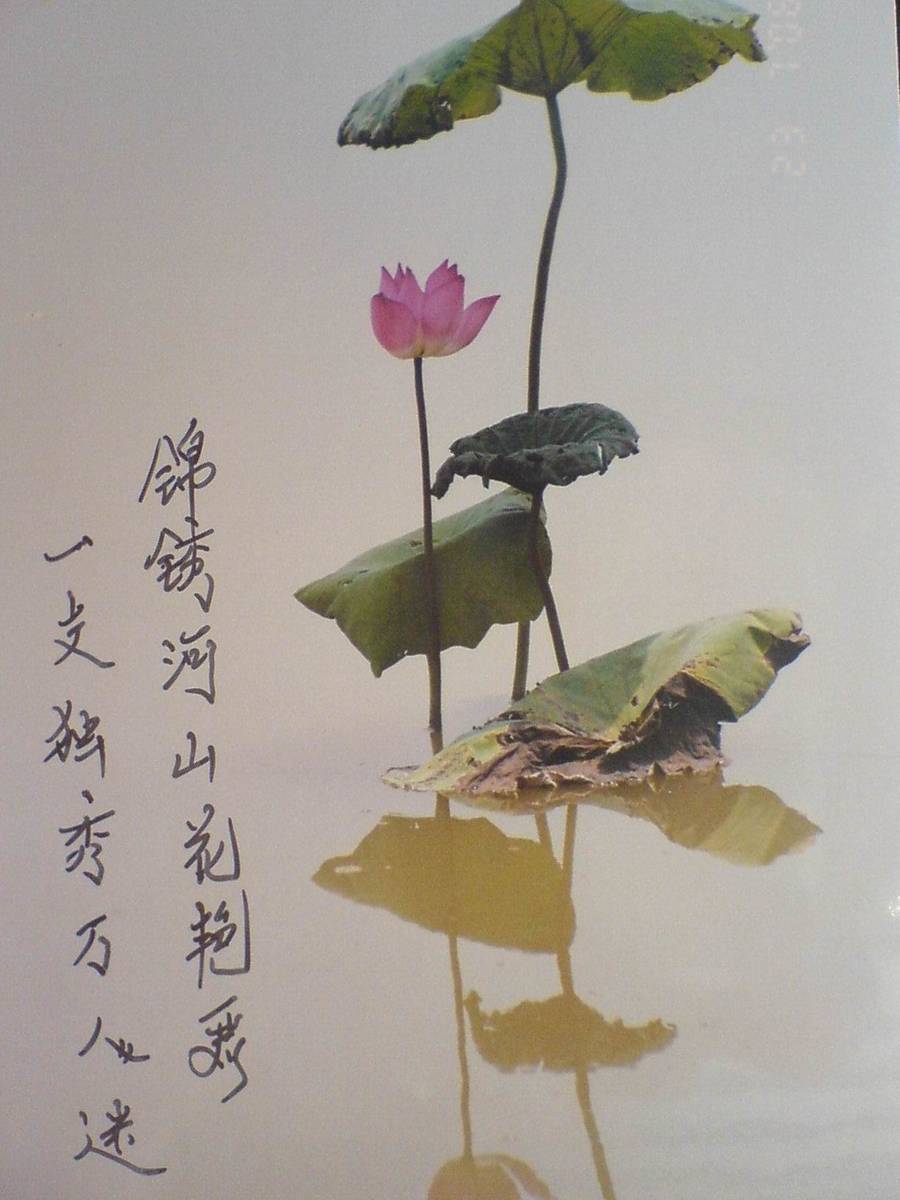 锦锈河山花艳丽
一支独秀万人迷